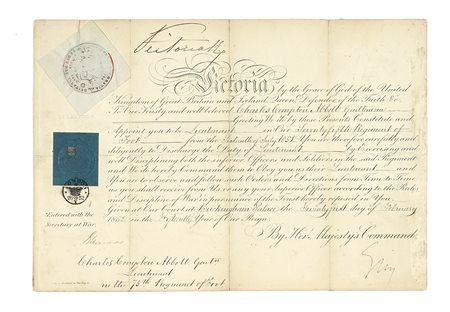 Victoria R
Victoria by the Grace of God of the United
Kingdom of Great Britain and Ireland, Queen, Defender of the Faith &c.
To Our Trusty and well beloved Charles Compton Abbott Gentleman
Greeting We do by these Presents Constitute and
Appoint you to be Lieutenant in Our Seventy fifth Regiment of
Foot from the day of July 1851. You are therefore carefully and
diligently to Discharge the Duty of Lieutenant by Exercising and
well Disciplining both the inferior Officers and Soldiers in the said Regiment
and We do hereby Command them to Obey you as their Lieutenant and
You to observe and follow such Orders and Directions from Time to Time
as you shall receive from Us or any your Superior Officer according to the Rules
and Discipline of War in pursuance of the Trust hereby reposed in You
Given at Our Court at Buckingham Palace the Twenty first day of February
1852 in the Year of Our Reign
Entered with the
Secretary at War
By Her Majesty's Command
Charles Compton Abbott Gent
Lieutenant
in the 75th Regiment of Foot